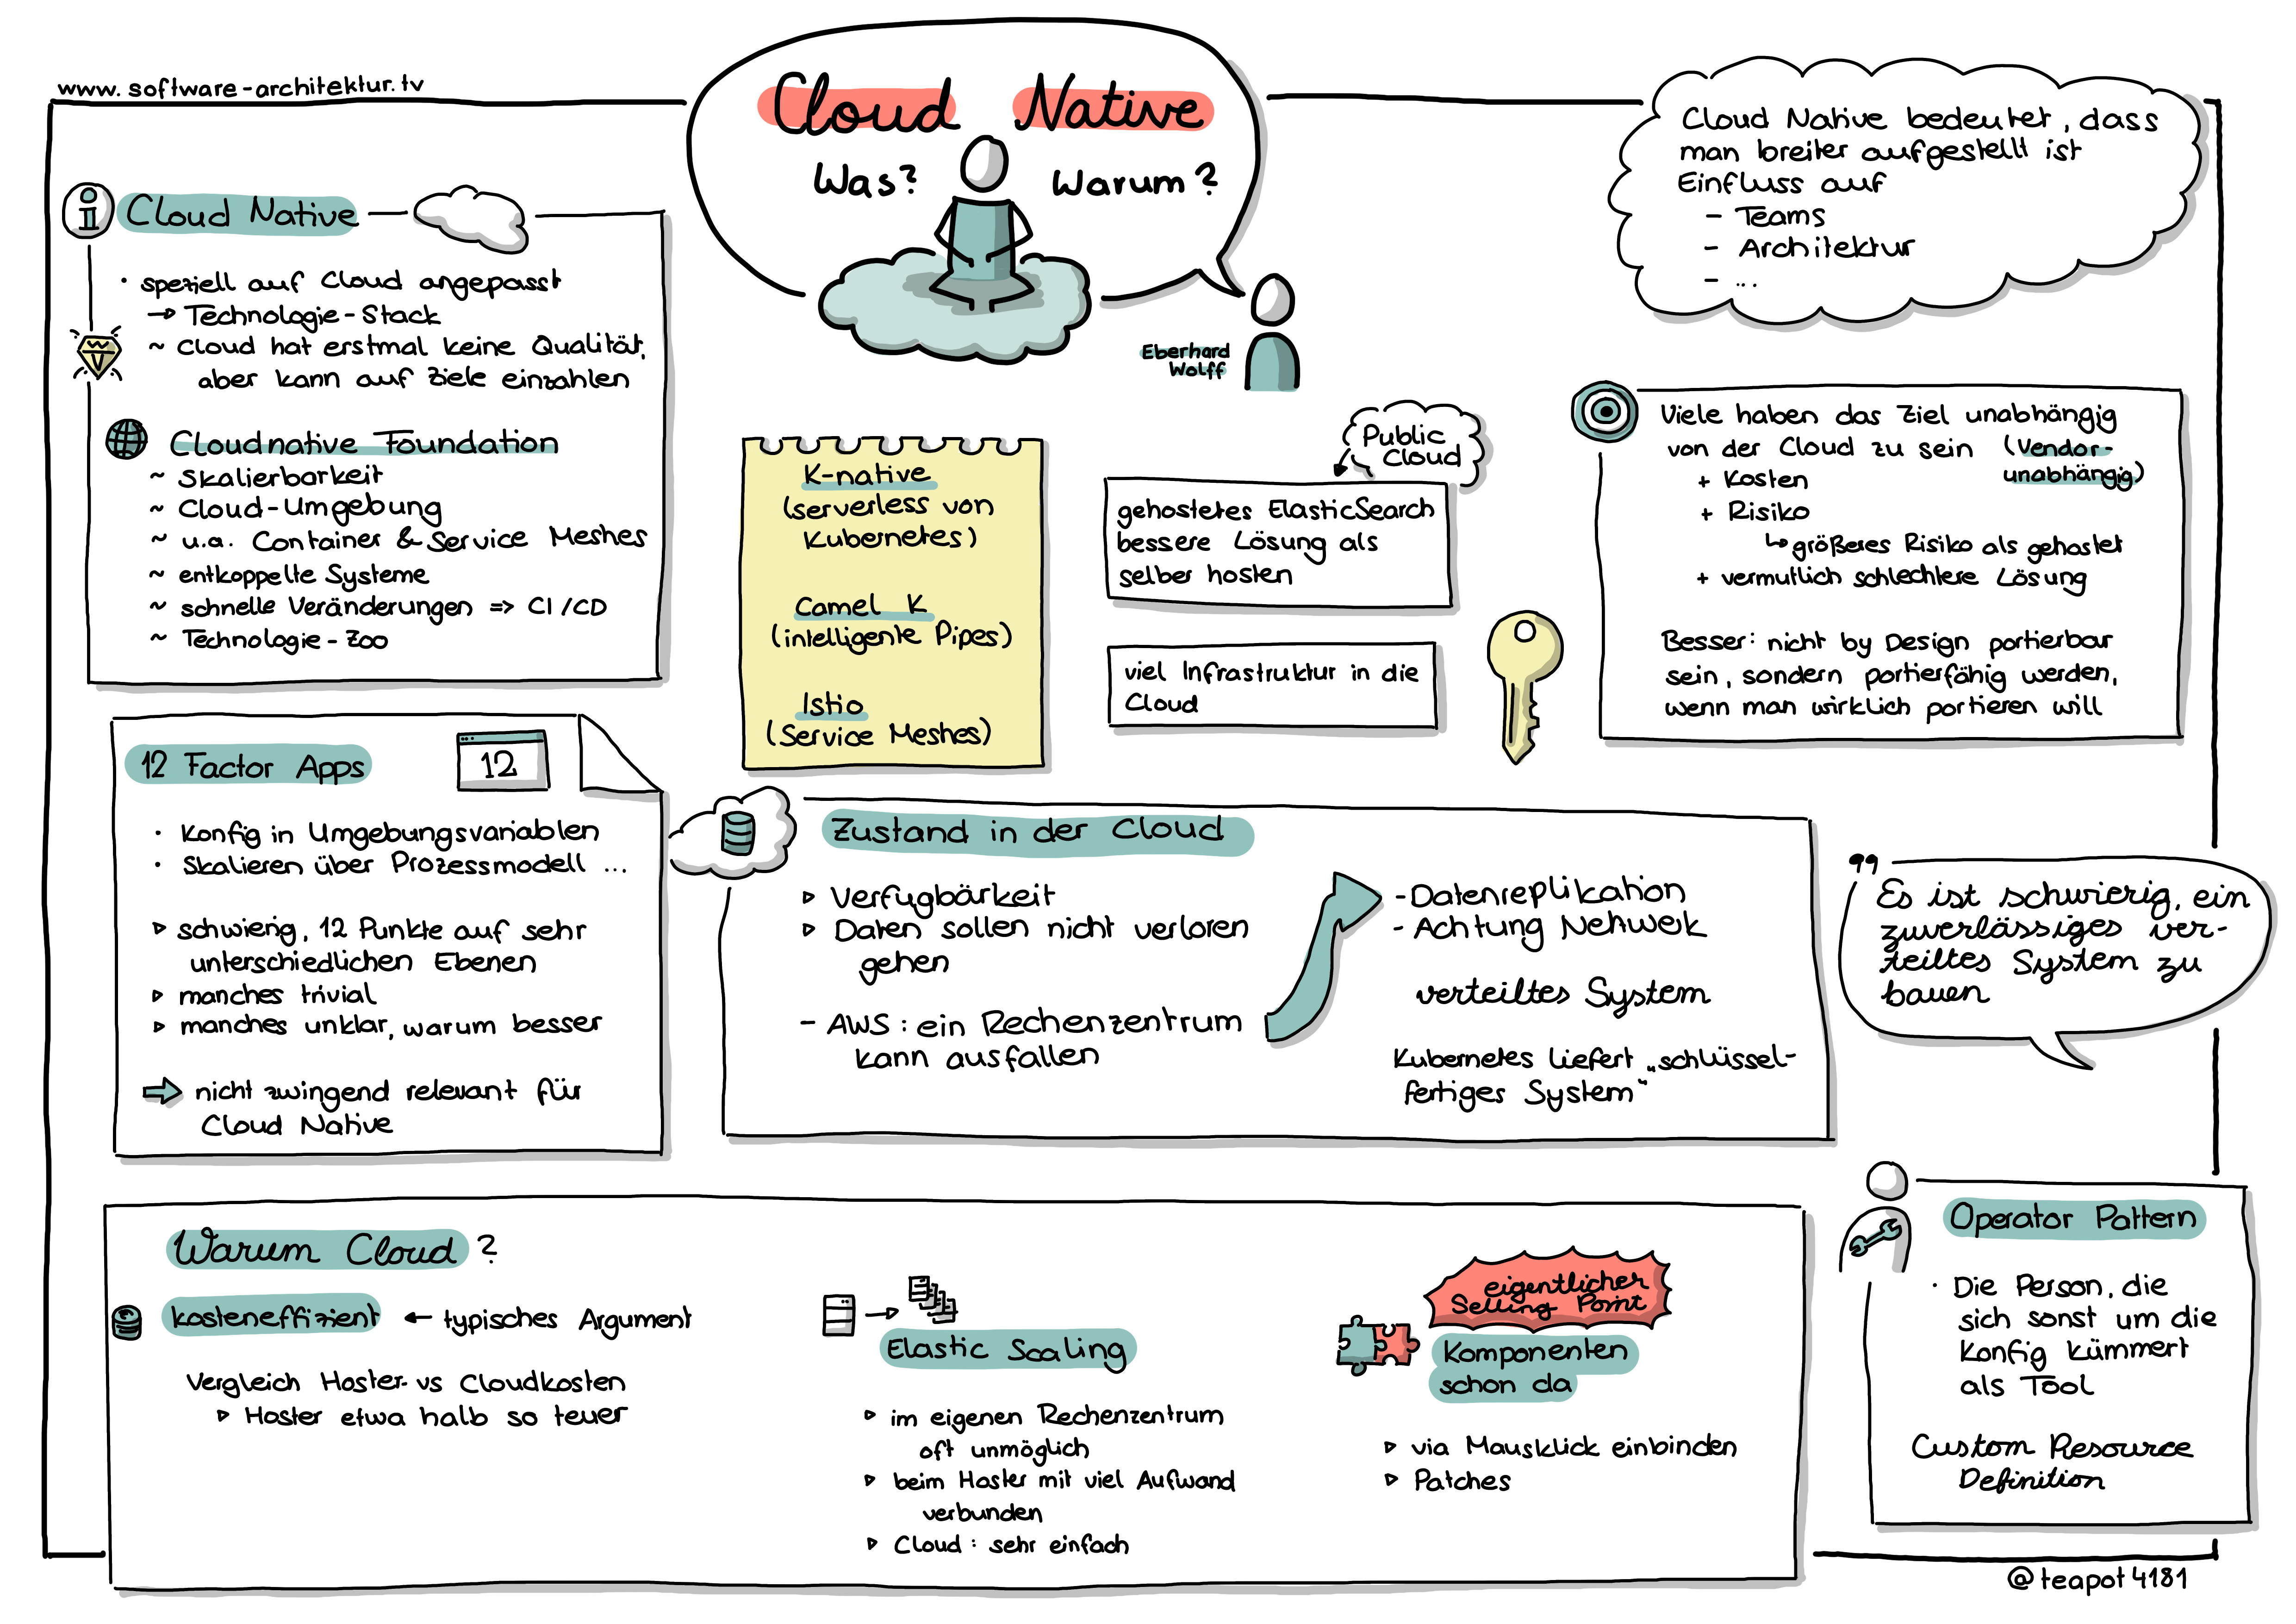 www.software-architektur.tv
Cloud Native
Was? Warum?
Eberhard
Wolff
Cloud Native bedeutet, dass
man breiter aufgestellt ist
Einfluss auf
- Teams
- Architektur
- ...
Cloud Native
· speziell auf Cloud angepasst
→ Technologie-Stack
~ Cloud hat erstmal keine Qualität,
aber kann auf Ziele einzahlen
Cloudnative Foundation
~ Skalierbarkeit
~ Cloud-Umgebung
~ u.a. Container & Service Meshes
~ entkoppelte Systeme
~ schnelle Veränderungen => CI/CD
~ Technologie-Zoo
K-native
(serverless von
Kubernetes)
Camel K
(intelligente Pipes)
Istio
(Service Meshes)
Public
Cloud
gehostetes ElasticSearch
bessere Lösung als
selber hosten
viel Infrastruktur in die
Cloud
Viele haben das Ziel unabhängig
von der Cloud zu sein (Vendor-
unabhängig)
+ Kosten
+ Risiko
↳ größeres Risiko als gehostet
+ vermutlich schlechtere Lösung
Besser: nicht by Design portierbar
sein, sondern portierfähig werden,
wenn man wirklich portieren will
12 Factor Apps
12
· Konfig in Umgebungsvariablen
· Skalieren über Prozessmodell ...
▹ schwierig, 12 Punkte auf sehr
unterschiedlichen Ebenen
▹ manches trivial
▹ manches unklar, warum besser
⇒ nicht zwingend relevant für
Cloud Native
Zustand in der Cloud
▹ Verfugbärkeit
▹ Daten sollen nicht verloren
gehen
- AWS: ein Rechenzentrum
kann ausfallen
- Datenreplikation
- Achtung Netzwerk
verteiltes System
Kubernetes liefert „schlüssel-
fertiges System"
"Es ist schwierig, ein
zuverlässiges ver-
teiltes System zu
bauen
Warum Cloud?
kosteneffizient ← typisches Argument
Vergleich Hoster- vs Cloudkosten
▹ Hoster etwa halb so teuer
Elastic Scaling
▹ im eigenen Rechenzentrum
oft unmöglich
▹ beim Hoster mit viel Aufwand
verbunden
▹ Cloud: sehr einfach
eigentlicher
Selling Point
Komponenten
schon da
▹ via Mausklick einbinden
▹ Patches
Operator Pattern
· Die Person, die
sich sonst um die
Konfig kümmert
als Tool
Custom Resource
Definition
@teapot4181